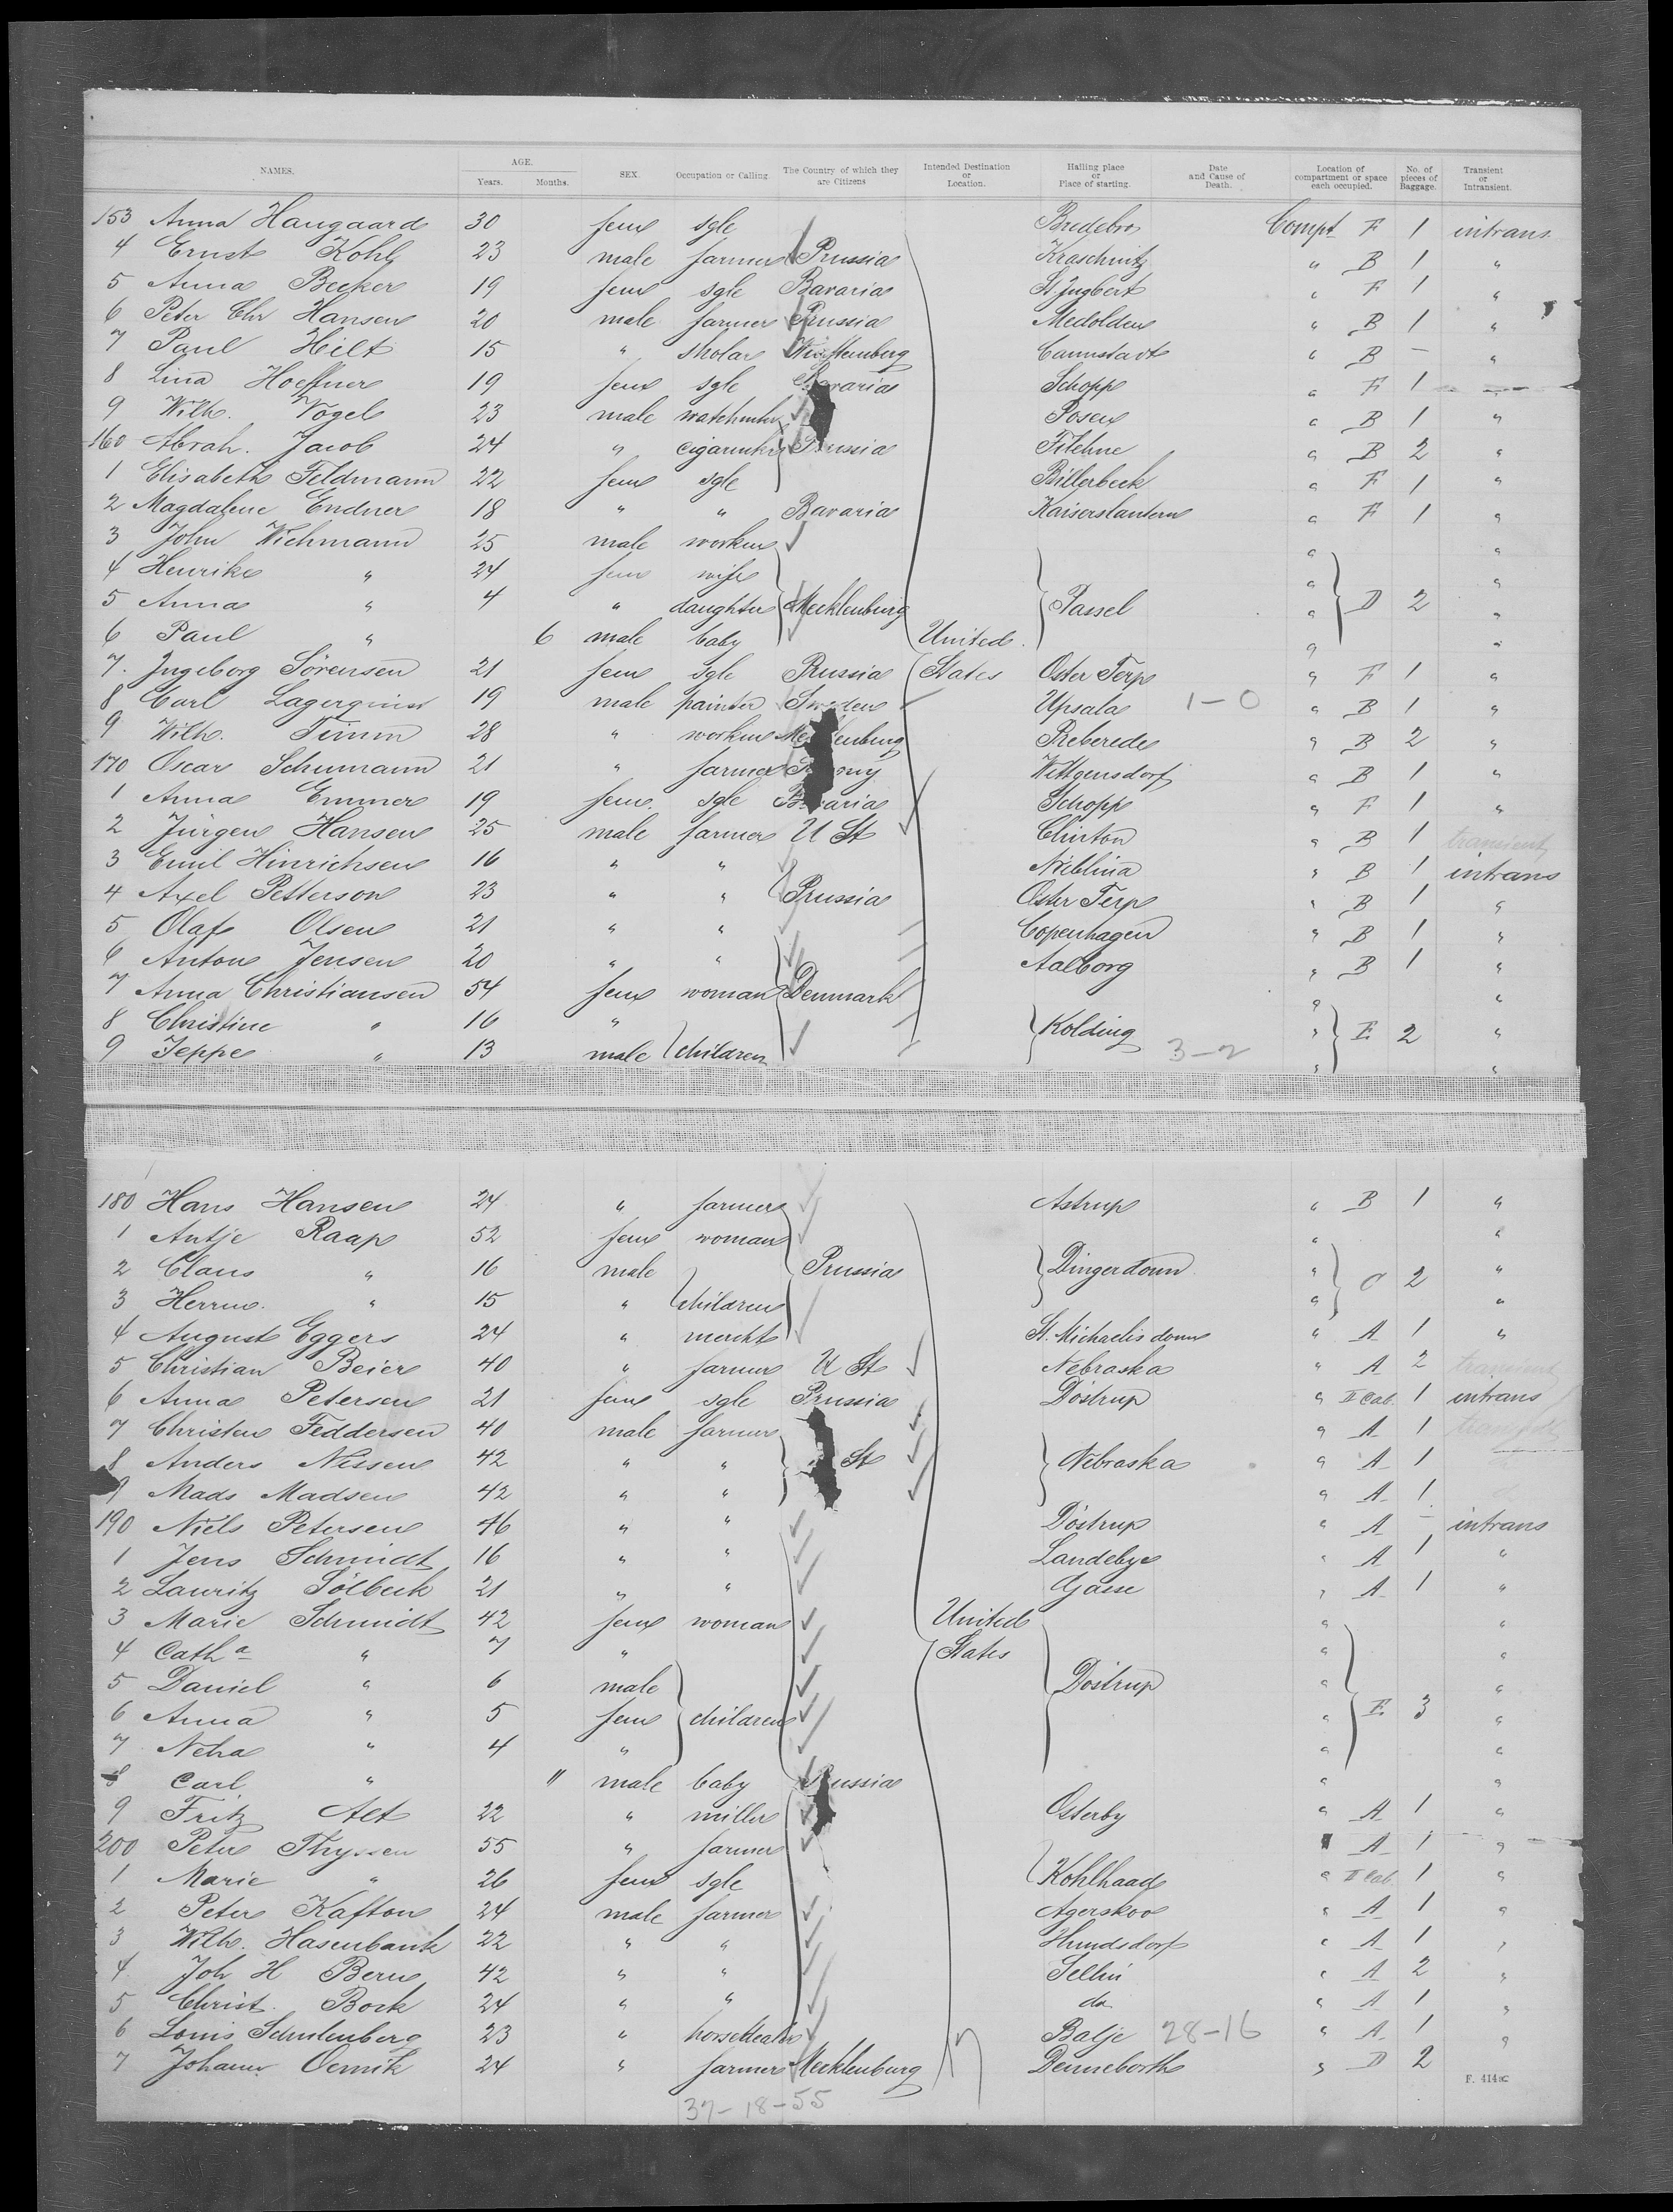 NAMES. AGE. Years. Months. SEX. Occupation or Calling. The Country of which they are Citizens Intended Destination or Location. Hailing place or Place of starting. Date and Cause of Death. Location of compartment or space each occupied. No. of pieces of Baggage. Transient or Intransient.
153 Anna Haugaard 30 fem sgle Bredebro Compt F 1 intrans
4 Ernst Kohl 23 male farmer Prussia Kraschnitz " B 1 "
5 Anna Becker 19 fem sgle Bavaria St. Ingbert " F 1 "
6 Peter Chr Hansen 20 male farmer Prussia Medolden " B 1 "
7 Paul Hilt 15 " sholar Württemberg Cannstadt " B — "
8 Lina Hoeffner 19 fem sgle Bavaria Schopp " F 1 "
9 Wilh. Vogel 23 male Posen " B 1 "
160 Abrah. Jacob 24 " Prussia Filehne " B 2 "
1 Elisabeth Feldmann 22 fem sgle Billerbeck " F 1 "
2 Magdalene Endner 18 " " Bavaria Kaiserslautern " F 1 "
3 John Wichmann 25 male workm " "
4 Henrike " 24 fem wife " "
5 Anna " 4 " daughter Mecklenburg Passel " D 2 "
6 Paul " 6 male baby United " "
7. Ingeborg Sörensen 21 fem sgle Prussia States Oster Terp " F 1 "
8 Carl Lagerquist 19 male painter Sweden Upsala 1-0 " B 1 "
9 Wilh. Timm 28 " workm Mecklenburg Reberede " B 2 "
170 Oscar Schumann 21 " farmer Wittgensdorf " B 1 "
1 Anna Emmer 19 fem. sgle Bavaria Schopp " F 1 "
2 Jürgen Hansen 25 male farmer U St Clinton " B 1 transient
3 Emil Hinrichsen 16 " " Nüblina " B 1 intrans
4 Axel Petterson 23 " " Prussia Oster Terp " B 1 "
5 Olaf Olsen 21 " " Copenhagen " B 1 "
6 Anton Jensen 20 " " Aalborg " B 1 "
7 Anna Christiansen 54 fem woman Denmark " "
8 Christine " 16 " Kolding " E 2 "
9 Jeppe " 13 male children 3-2 " "
180 Hans Hansen 24 " farmer Astrup " B 1 "
1 Antje Raap 52 fem woman " "
2 Claus " 16 male Prussia Dingerdonn " C 2 "
3 Herm. " 15 " children " "
4 August Eggers 24 " mercht St. Michaelisdonn " A 1 "
5 Christian Beier 40 " farmer U St Nebraska " A 2 transient
6 Anna Petersen 21 fem sgle Prussia Döstrup " II Cab. 1 intrans
7 Christen Feddersen 40 male farmer " A 1 transient
8 Anders Nissen 42 " " St Nebraska " A 1
9 Mads Madsen 42 " " " A 1
190 Niels Petersen 46 " " Döstrup " A — intrans
1 Jens Schmidt 16 " " Landebye " A 1 "
2 Lauritz Sölbeck 21 " " Gasse " A 1 "
3 Marie Schmidt 42 fem woman United " "
4 Catha " 7 " States " "
5 Daniel " 6 male Döstrup " "
6 Anna " 5 fem children " E 3 "
7 Neha " 4 " " "
8 Carl " 11 male baby Prussia " "
9 Fritz Alt 22 " miller Osterby " A 1 "
200 Peter Thyssen 55 " farmer " A 1 "
1 Marie " 26 fem sgle Kohlhaade " II Cab 1 "
2 Peter Kafton 24 male farmer Agerskov " A 1 "
3 Wilh. Hasenbank 22 " " Hundsdorf " A 1 "
4 Joh H Bern 42 " " Sellin " A 2 "
5 Christ. Bork 24 " " do " A 1 "
6 Louis Schulenberg 23 " horsedealer Balje 28-16 " A 1 "
7 Johann Oemik 24 " farmer Mecklenburg Denneborth " D 2
F. 414
37-18-55